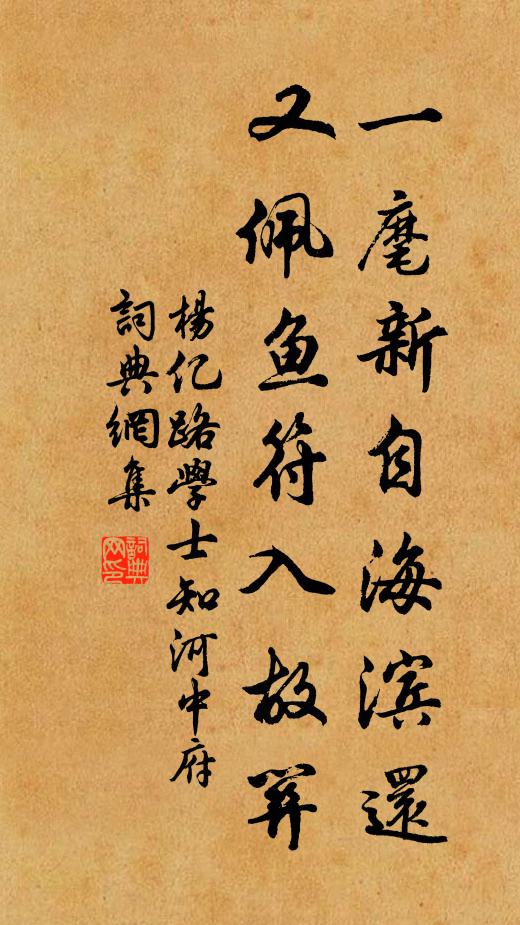 一麾新自海滨還
又佩鱼符入故關
楊亿路學士知河中府
詞典網集
詞典网印